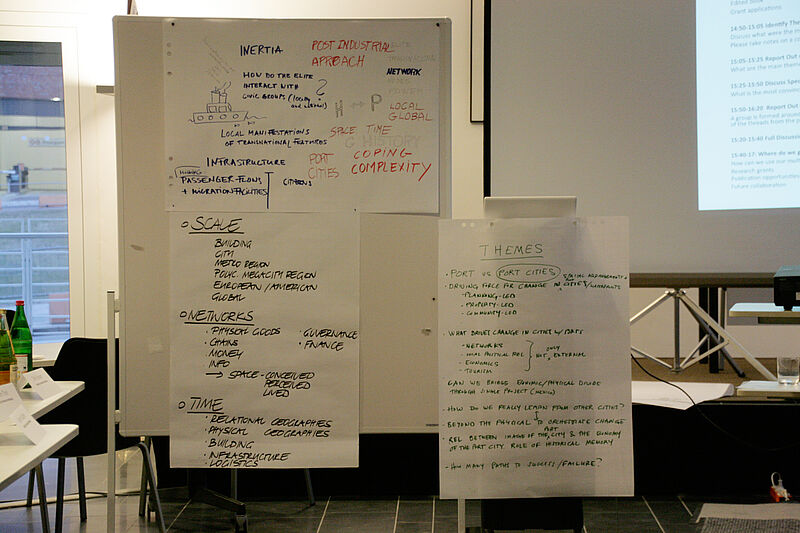 INERTIA
HOW DO THE ELITE
INTERACT WITH
CIVIC GROUPS (locally
?
LOCAL MANIFESTATIONS
OF TRANSNATIONAL FEATURES
INFRASTRUCTURE
PASSENGER-FLOWS
+ MIGRATION-FACILITIES
CITIZENS
POST INDUSTRIAL
APROACH
ELITE
NETWORK
H P
LOCAL
GLOBAL
SPACE TIME
HISTORY
PORT
CITIES
COPING
COMPLEXITY
SCALE
BUILDING
CITY
METRO REGION
EUROPEAN/AMERICAN
GLOBAL
NETWORKS
• PHYSICAL GOODS • GOVERNANCE
• CHAINS • FINANCE
• MONEY
• INFO
→ SPACE - CONCEIVED
PERCEIVED
LIVED
TIME
• RELATIONAL GEOGRAPHIES
• PHYSICAL GEOGRAPHIES
• BUILDING
• INFRASTRUCTURE
• LOGISTICS
THEMES
• PORT VS PORT CITIES
• DRIVING FORCE FOR CHANGE IN CITIES/
- PLANNING-LED
- PROPERTY-LED
- COMMUNITY-LED
• WHAT DRIVES CHANGE IN CITIES W/ PORTS
- NETWORKS
- ECONOMICS
- TOURISM
NOT ONLY EXTERNAL
CAN WE BRIDGE ECONOMIC/PHYSICAL DIVIDE
THROUGH SINGLE PROJECT
• HOW DO WE REALLY LEARN FROM OTHER CITIES?
• BEYOND THE PHYSICAL TO ORCHESTRATE CHANGE
• REL BETWEEN IMAGE OF THE CITY & THE ECONOMY
OF THE PORT CITY ROLE OF HISTORICAL MEMORY
• HOW MANY PATHS TO SUCCESS/FAILURE?
Edited book
Grant applications
14:50-15:05 Identify
Discuss what were the
Please take notes on a
15:05-15:25 Report Out
What are the main
15:25-15:50 Discuss
What is the most
15:50-16:20 Report Out
A group is formed around
of the threads from the
15:20-15:40 Full
15:40-17: Where do we
How can we use our
Research grants
Publication opportunities
Future collaboration